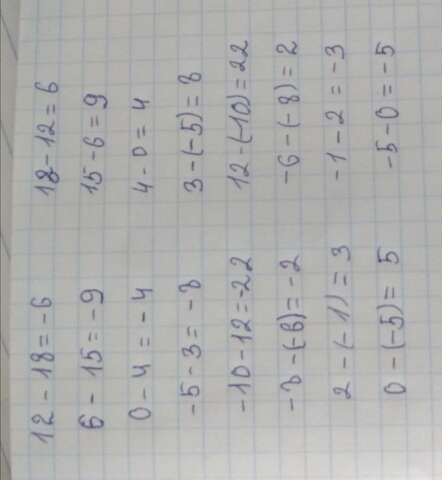 12 - 18 = -6 18 - 12 = 6
6 - 15 = -9 15 - 6 = 9
0 - 4 = -4 4 - 0 = 4
-5 - 3 = -8 3 - (-5) = 8
-10 - 12 = -22 12 - (-10) = 22
-8 - (-6) = -2 -6 - (-8) = 2
2 - (-1) = 3 -1 - 2 = -3
0 - (-5) = 5 -5 - 0 = -5